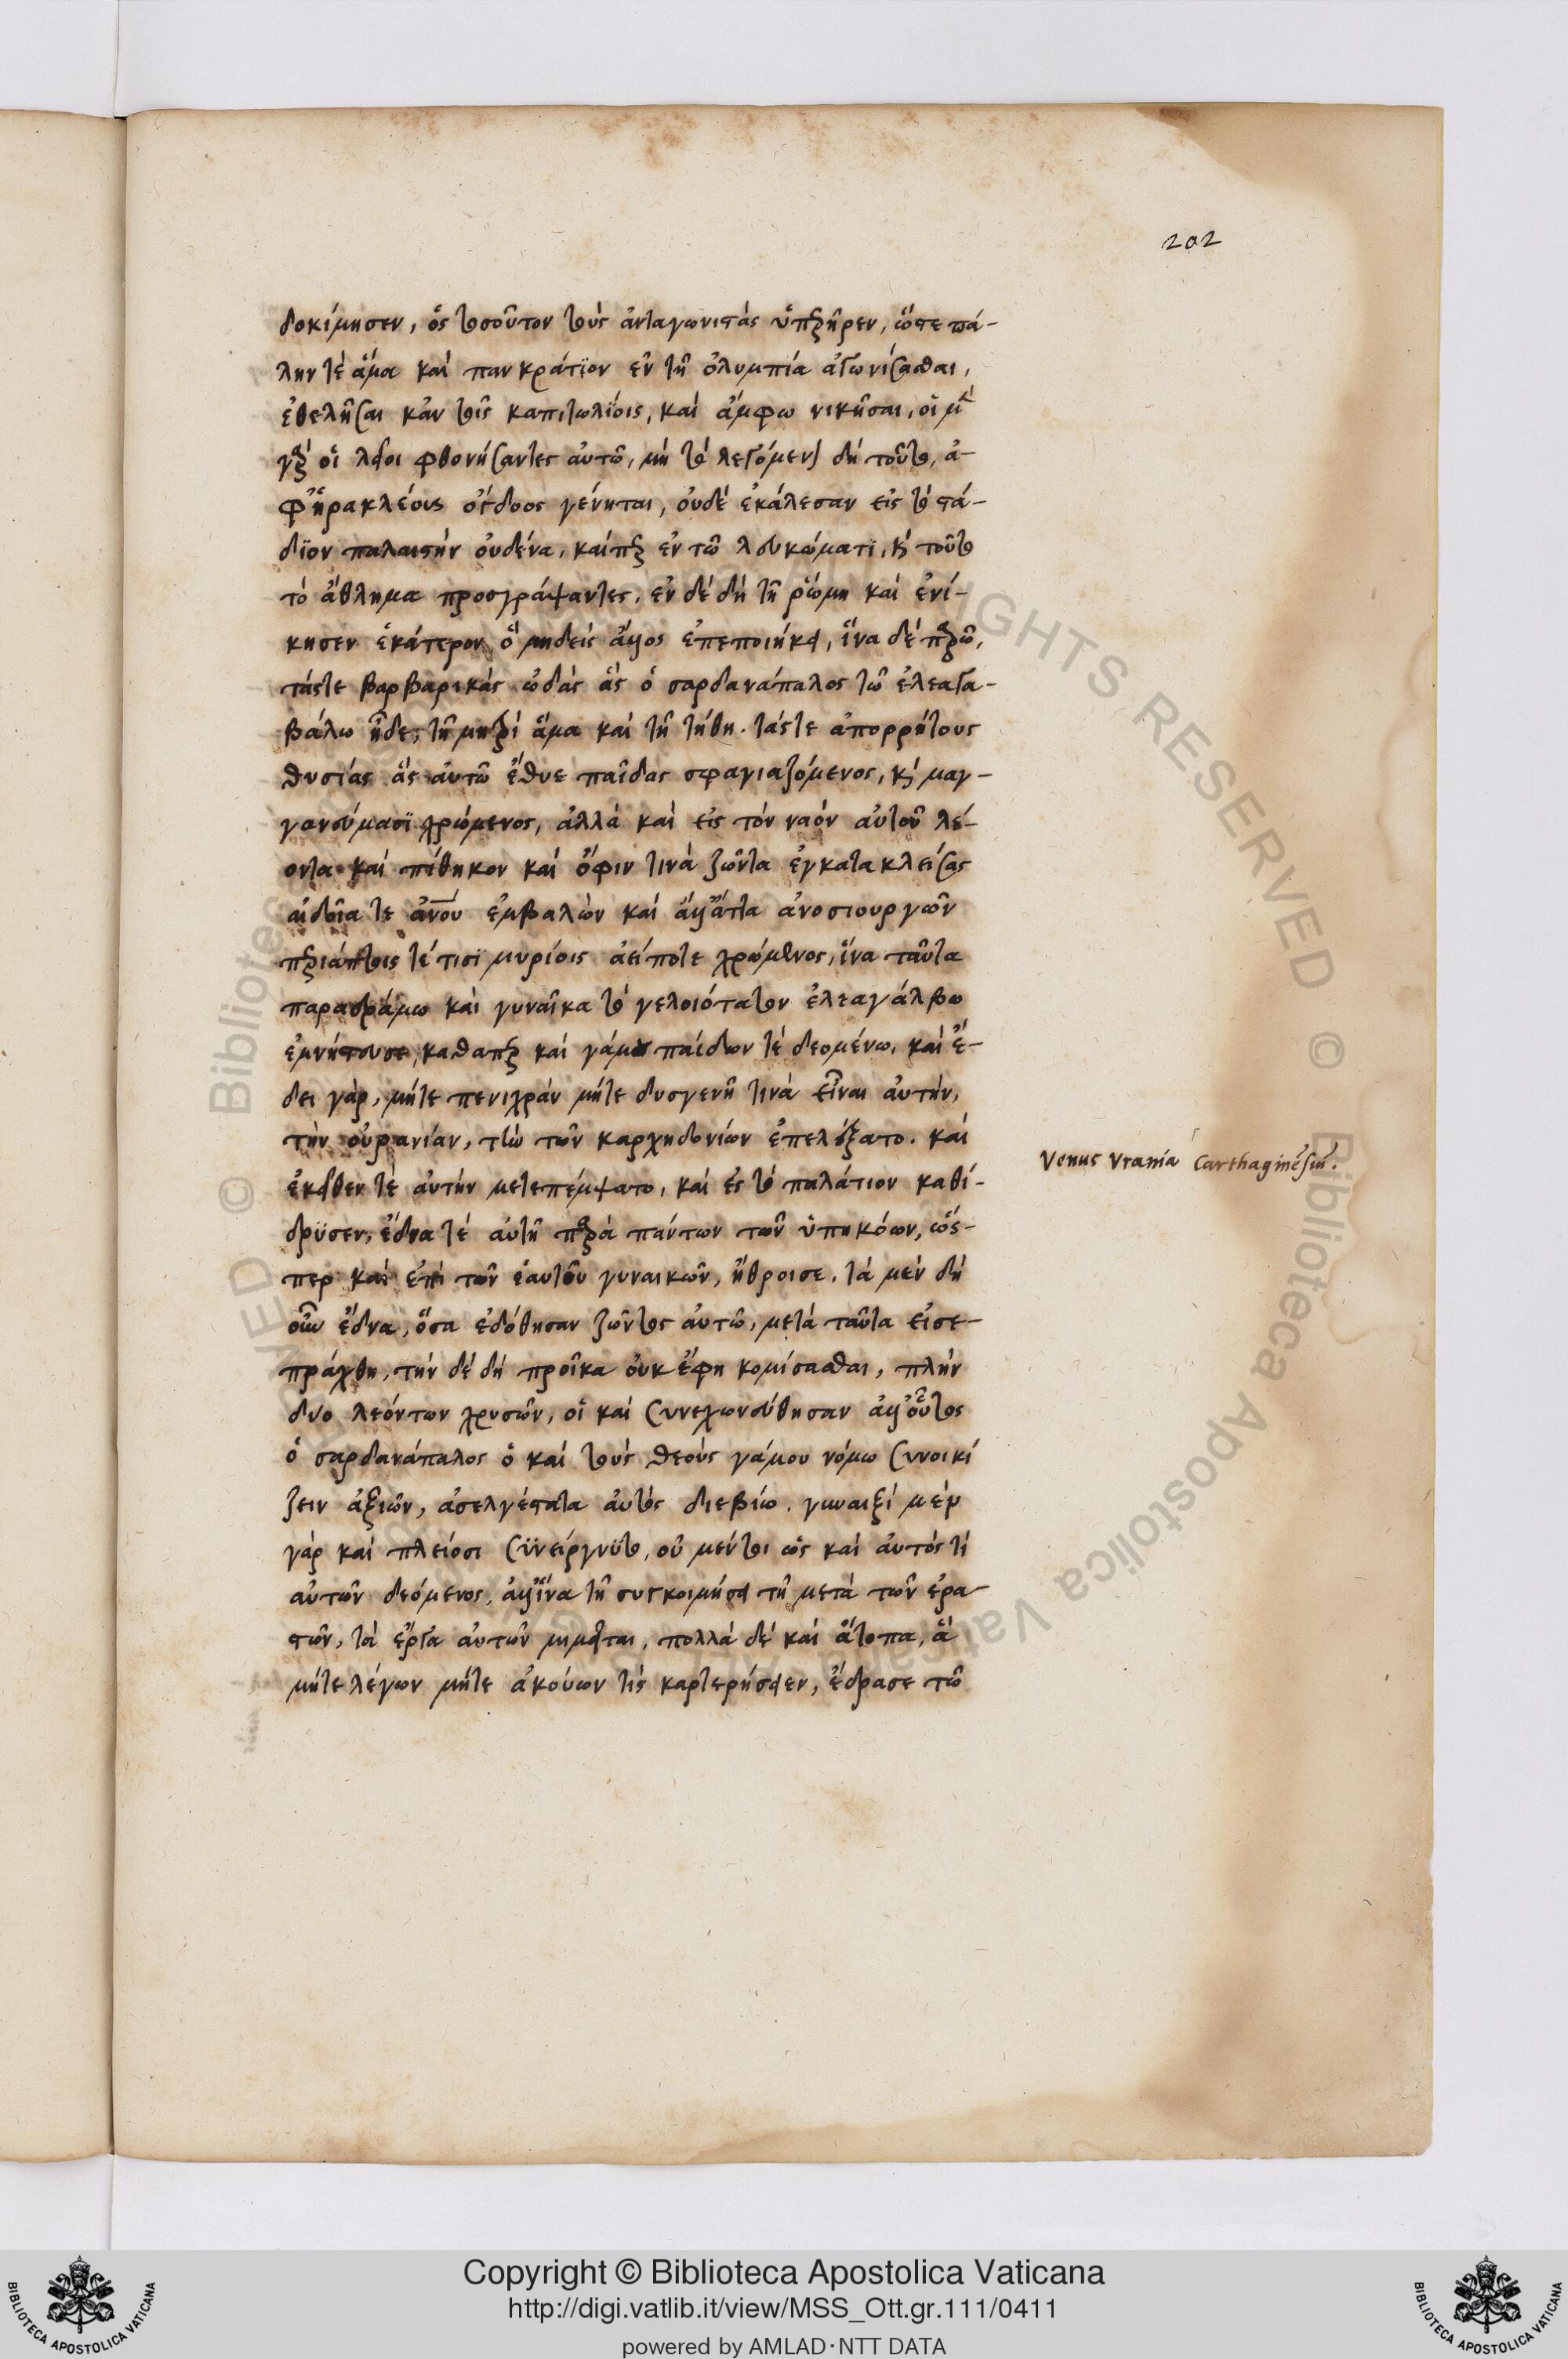 202
δοκίμησεν, ὃς τοσοῦτον τοὺς ἀνταγωνιστὰς ὑπερῆρεν, ὥστε πά-
λην τὲ ἅμα καὶ πανκράτϊον ἐν τῇ ὀλυμπία ἀγωνίσασθαι,
ἐθελῆσαι κἀν τοῖς καπιτωλίοις, καὶ ἄμφω νικῆσαι, οἱ μὲν
γὰρ οἱ λεῖοι φθονήσαντες αὐτῶ, μὴ τὸ λεγόμενον δὴ τοῦτο, ἀ-
φ' ἡρακλέους ὄγδοος γένηται, οὐδὲ ἐκάλεσαν εἰς τὸ στά-
δϊον παλαιστὴν οὐδένα, καίπερ ἐν τῶ λευκώματϊ, καὶ τοῦτο
τὸ ἄθλημα προσγράψαντες, ἐν δὲ δὴ τῇ ῥώμη καὶ ἐνί-
κησεν ἑκάτερον, ὃ μηδεὶς ἄλλος ἐπεποιήκει, ἵνα δὲ παρῶ,
τάςτε βαρβαρικὰς ὠδὰς ἃς ὁ σαρδανάπαλος τῶ ἐλεαγα-
βάλω ᾖδε, τῇ μητρὶ ἅμα καὶ τῇ τήθη. τάςτε ἀπορρήτους
θυσίας ἃς αὐτῶ ἔθυε παῖδας σφαγιαζόμενος, καὶ μαγ-
γανεύμασϊ χρώμενος, ἀλλὰ καὶ εἰς τὸν ναὸν αὐτοῦ λέ-
οντα καὶ πίθηκον καὶ ὄφιν τινὰ ζῶντα ἐγκατακλείσας
αἰδοῖα τε ἀνου ἐμβαλὼν καὶ ἀλλ' ἄττα ἀνοσιουργῶν
περιάπτοις τέ τισϊ μυρίοις ἀείποτε χρώμενος, ἵνα ταῦτα
παραδράμω καὶ γυναῖκα τὸ γελοιότατον ἐλεαγάλβω
ἐμνήστευσε, καθαπερ καὶ γάμου παίδων τὲ δεομένω, καὶ ἔ-
δει γὰρ, μήτε πενιχρὰν μήτε δυσγενῆ τινὰ εἶναι αὐτὴν,
τὴν οὐρανίαν, τὴν τῶν καρχηδονίων ἐπελέξατο. καὶ
ἐκεῖθεν τὲ αὐτὴν μετεπέμψατο, καὶ ἐς τὸ παλάτιον καθί-
δρϋσεν, ἕδνα τέ αὐτῇ παρὰ πάντων τῶν ὑπηκόων, ὥς-
περ καὶ ἐπὶ τῶν ἑαυτοῦ γυναικῶν, ἤθροισε. τὰ μὲν δὴ
οὖν ἕδνα, ὅσα ἐδόθησαν ζῶντος αὐτῶ, μετὰ ταῦτα εἰσε-
πράχθη, τὴν δὲ δὴ προῖκα οὐκ ἔφη κομίσασθαι, πλὴν
δυο λεόντων χρυσῶν, οἳ καὶ συνεχωνεύθησαν ἀλλ' οὗτος
ὁ σαρδανάπαλος ὁ καὶ τοὺς θεοὺς γάμου νόμω συνοικί
ζειν ἀξιῶν, ἀσελγέστατα αὐτὸς διεβίω. γυναιξὶ μὲν
γὰρ καὶ πλείοσι σϋνείργνϋτο, οὐ μέντοι ὡς καὶ αὐτός τί
αὐτῶν δεόμενος, ἀλλ' ἵνα τῇ συγκοιμήσει τῇ μετὰ τῶν ἐρα-
στῶν, τὰ ἔργα αὐτῶν μιμεῖται, πολλὰ δὲ καὶ ἄτοπα, ἃ
μήτε λέγων μήτε ἀκούων τὶς καρτερήσειεν, ἔδρασε τῶ
Venus Vrania Carthaginẽsiũ.
Copyright © Biblioteca Apostolica Vaticana
http://digi.vatlib.it/view/MSS_Ott.gr.111/0411
powered by AMLAD·NTT DATA
BIBLIOTECA APOSTOLICA VATICANA
BIBLIOTECA APOSTOLICA VATICANA